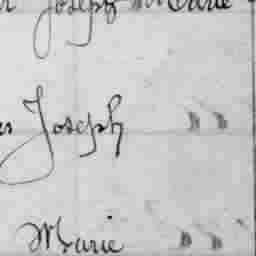 Joseph Marie
Joseph " "
Marie " "